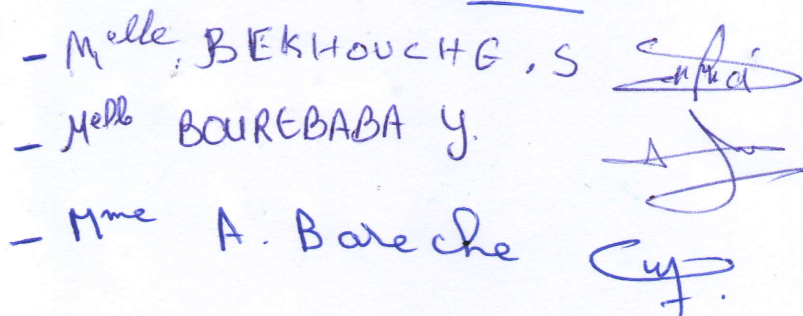 - Melle. BEKHOUCHE. S
- Melle BOUREBABA Y.
- Mme A. Bareche